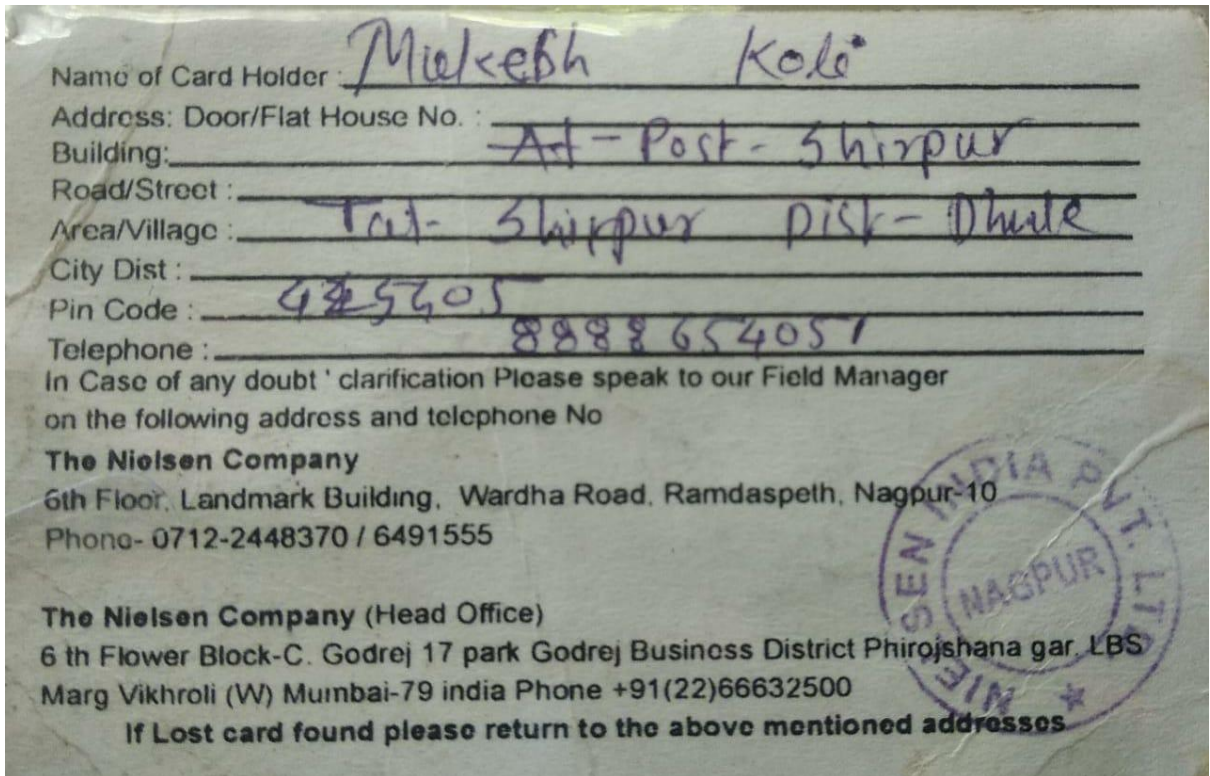 Name of Card Holder : Mukesh Koli
Address: Door/Flat House No. :
Building: At - Post - Shirpur
Road/Street :
Area/Village : Tal- Shirpur Dist - Dhule
City Dist :
Pin Code : 425405
Telephone : 8888654051
In Case of any doubt ' clarification Please speak to our Field Manager
on the following address and telephone No
The Nielsen Company
6th Floor, Landmark Building, Wardha Road, Ramdaspeth, Nagpur-10
Phone- 0712-2448370 / 6491555
The Nielsen Company (Head Office)
6 th Flower Block-C. Godrej 17 park Godrej Business District Phirojshana gar, LBS
Marg Vikhroli (W) Mumbai-79 india Phone +91(22)66632500
If Lost card found please return to the above mentioned addresses
NIELSEN INDIA PVT. LTD
NAGPUR